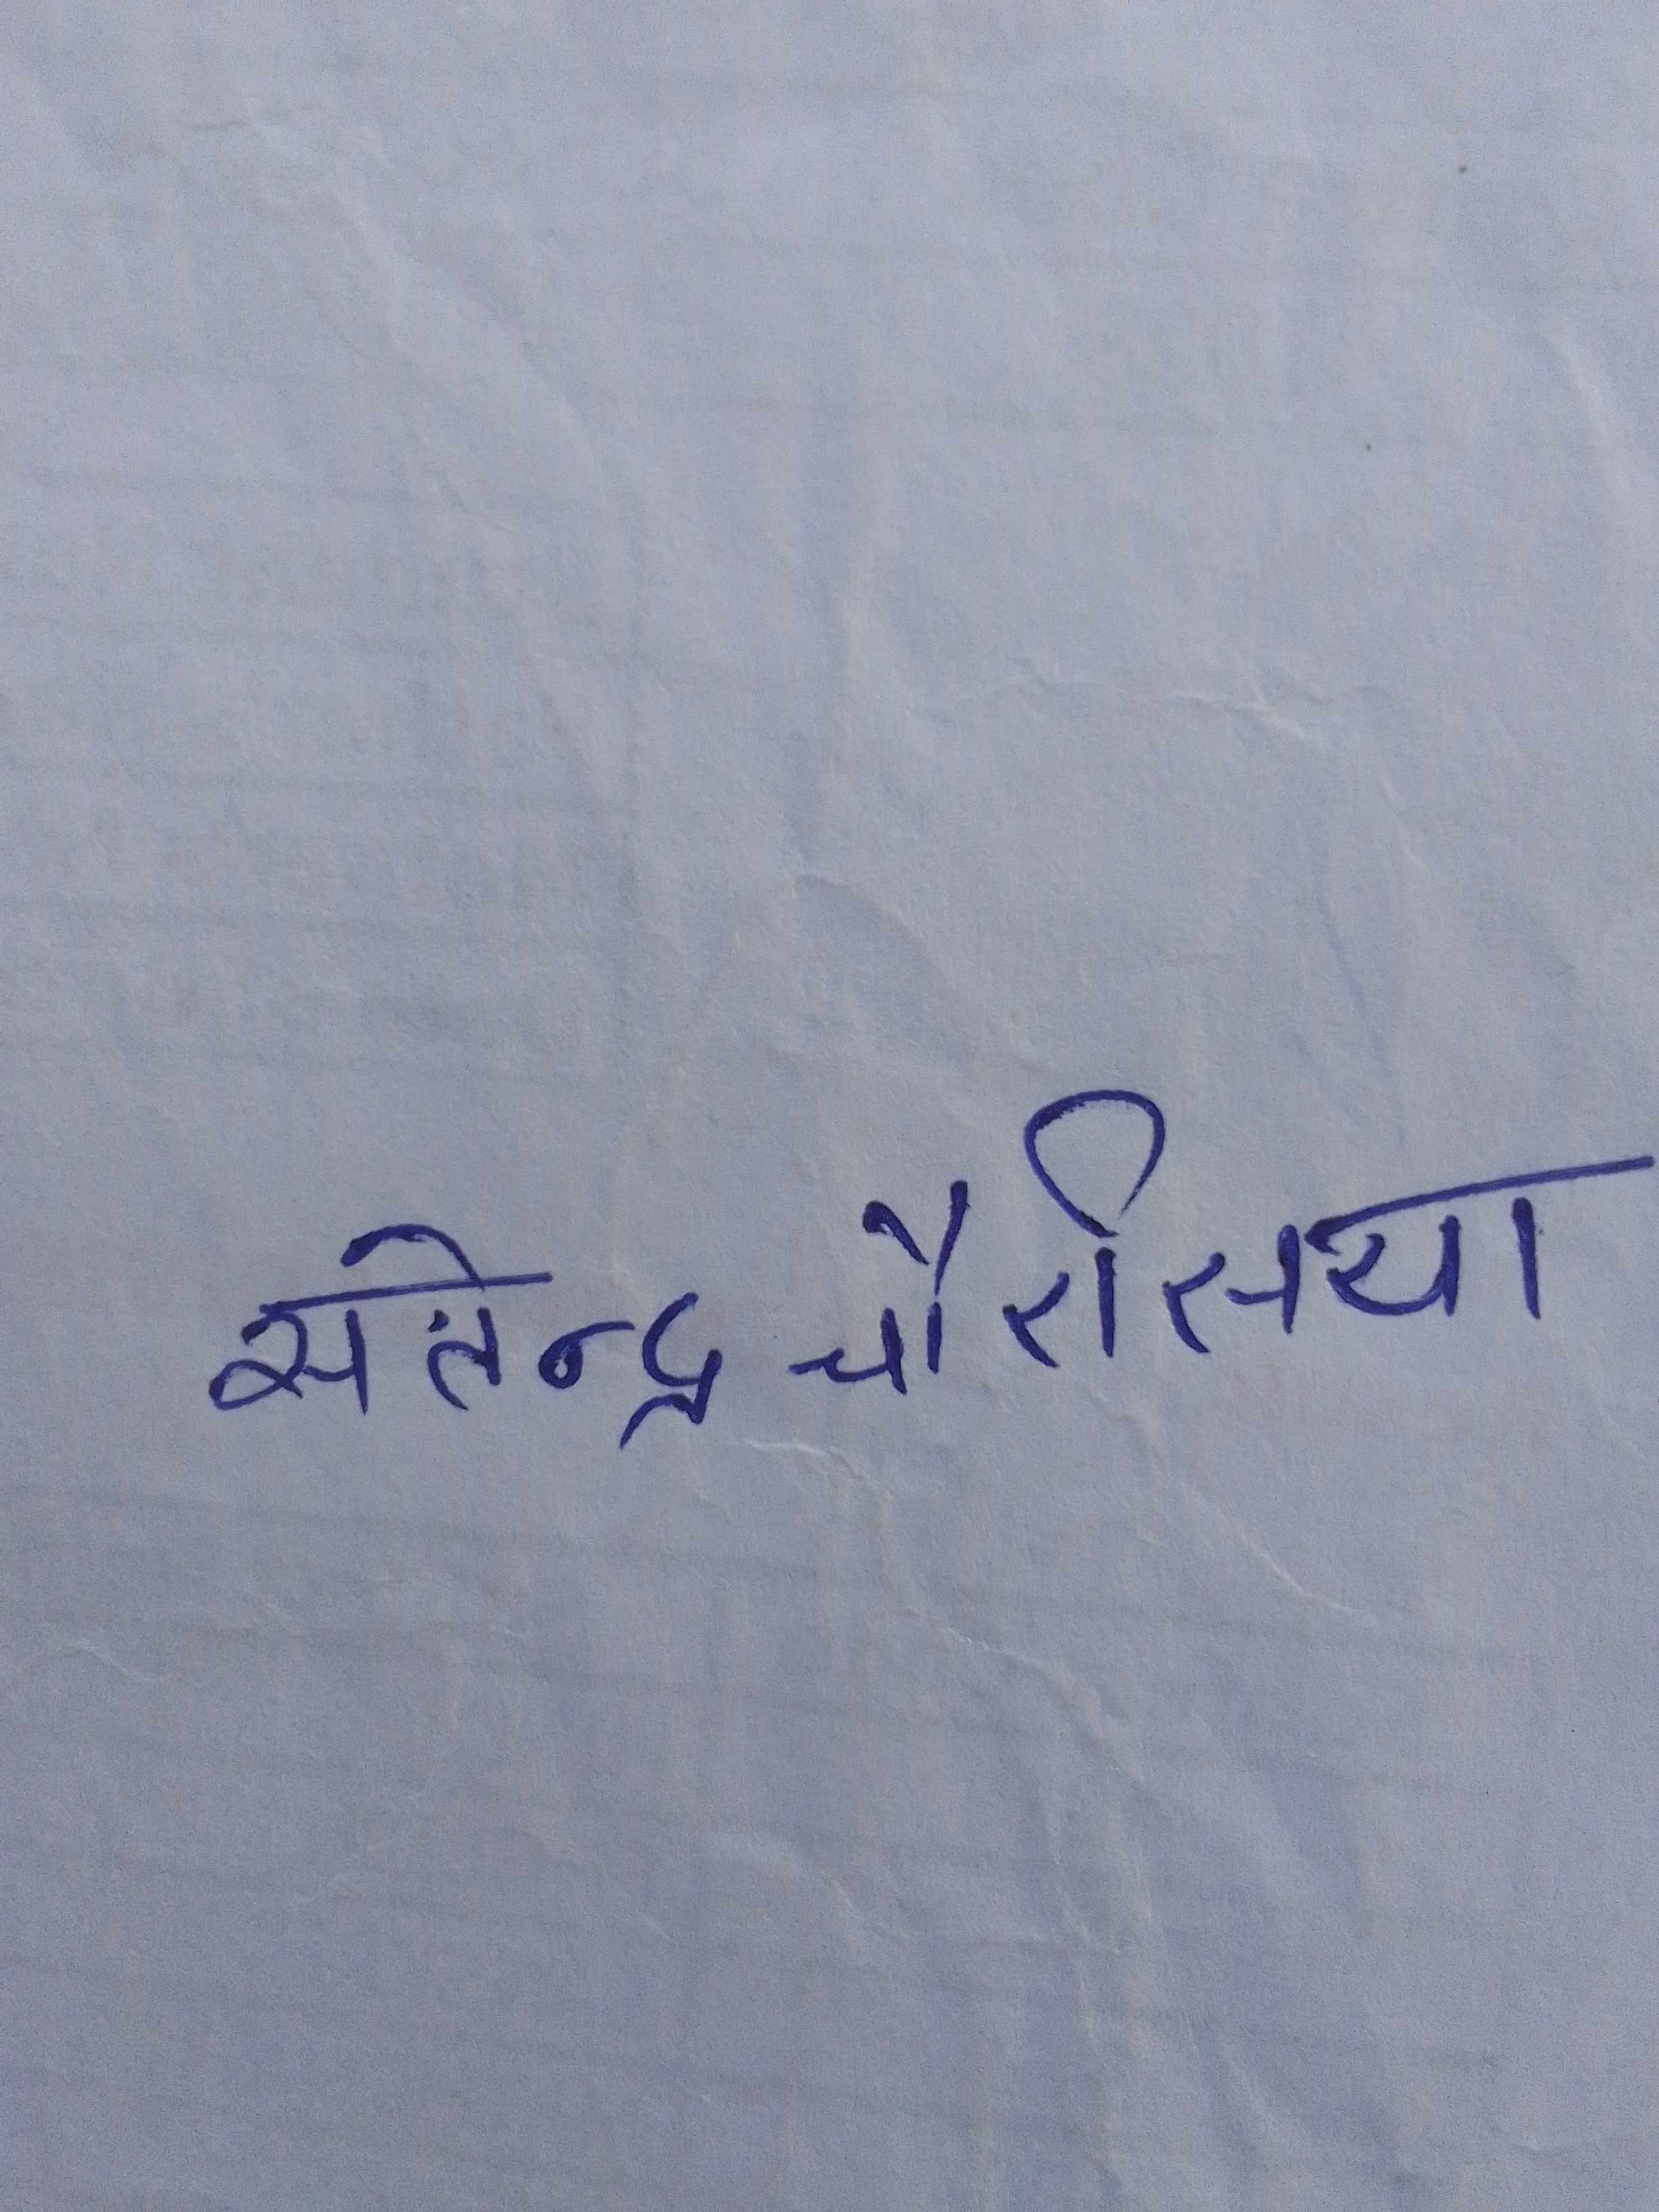 सतेन्द्र चौरसिया